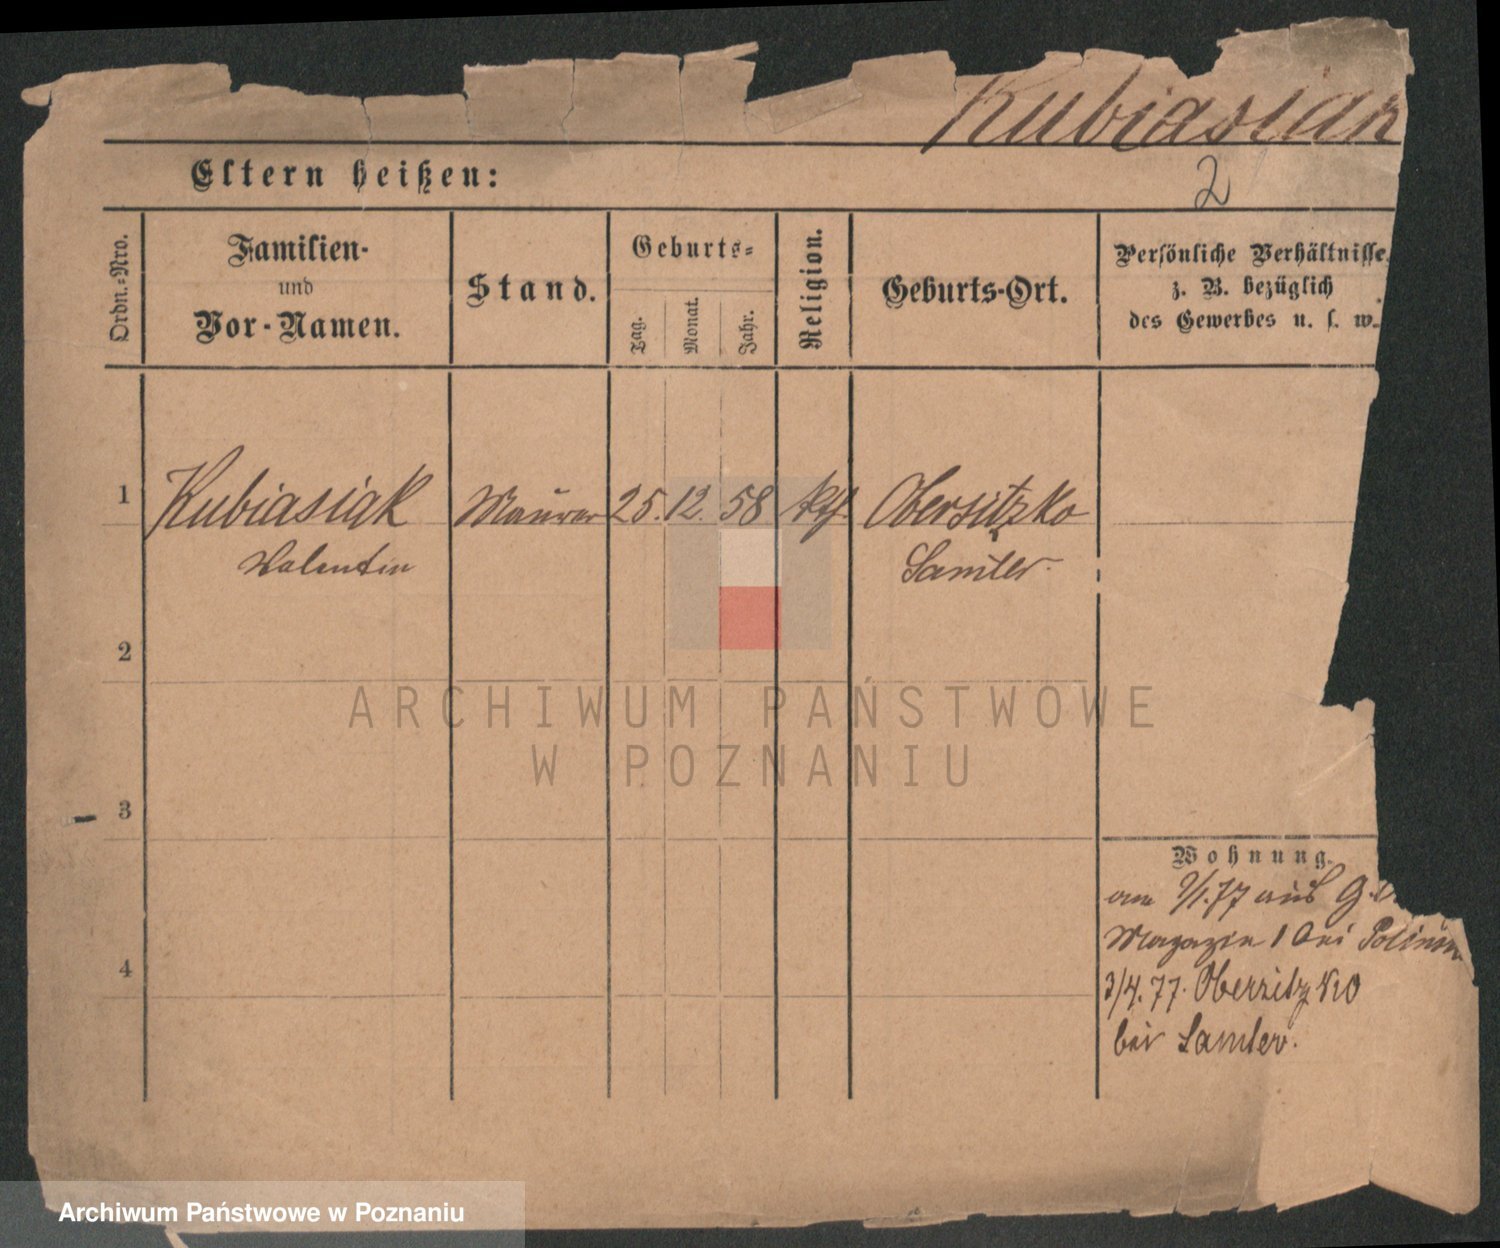 Kubiasiak
Eltern heißen:
2
Ordn.-Nro.
Familien-
und
Vor-Namen.
Stand.
Geburts-
Tag.
Monat.
Jahr.
Religion.
Geburts-Ort.
Persönliche Verhältnisse
z. B. bezüglich
des Gewerbes u. s. w.
1
Kubiasiak Maurer 25. 12. 58 kth. Obersitzko
Valentin Samter.
2
3
4
ARCHIWUM PAŃSTWOWE
W POZNANIU
Wohnung.
am 9/1.77 aus
Magazin 1 bei
3/4.77. Obersitzko
bei Samter.
Archiwum Państwowe w Poznaniu